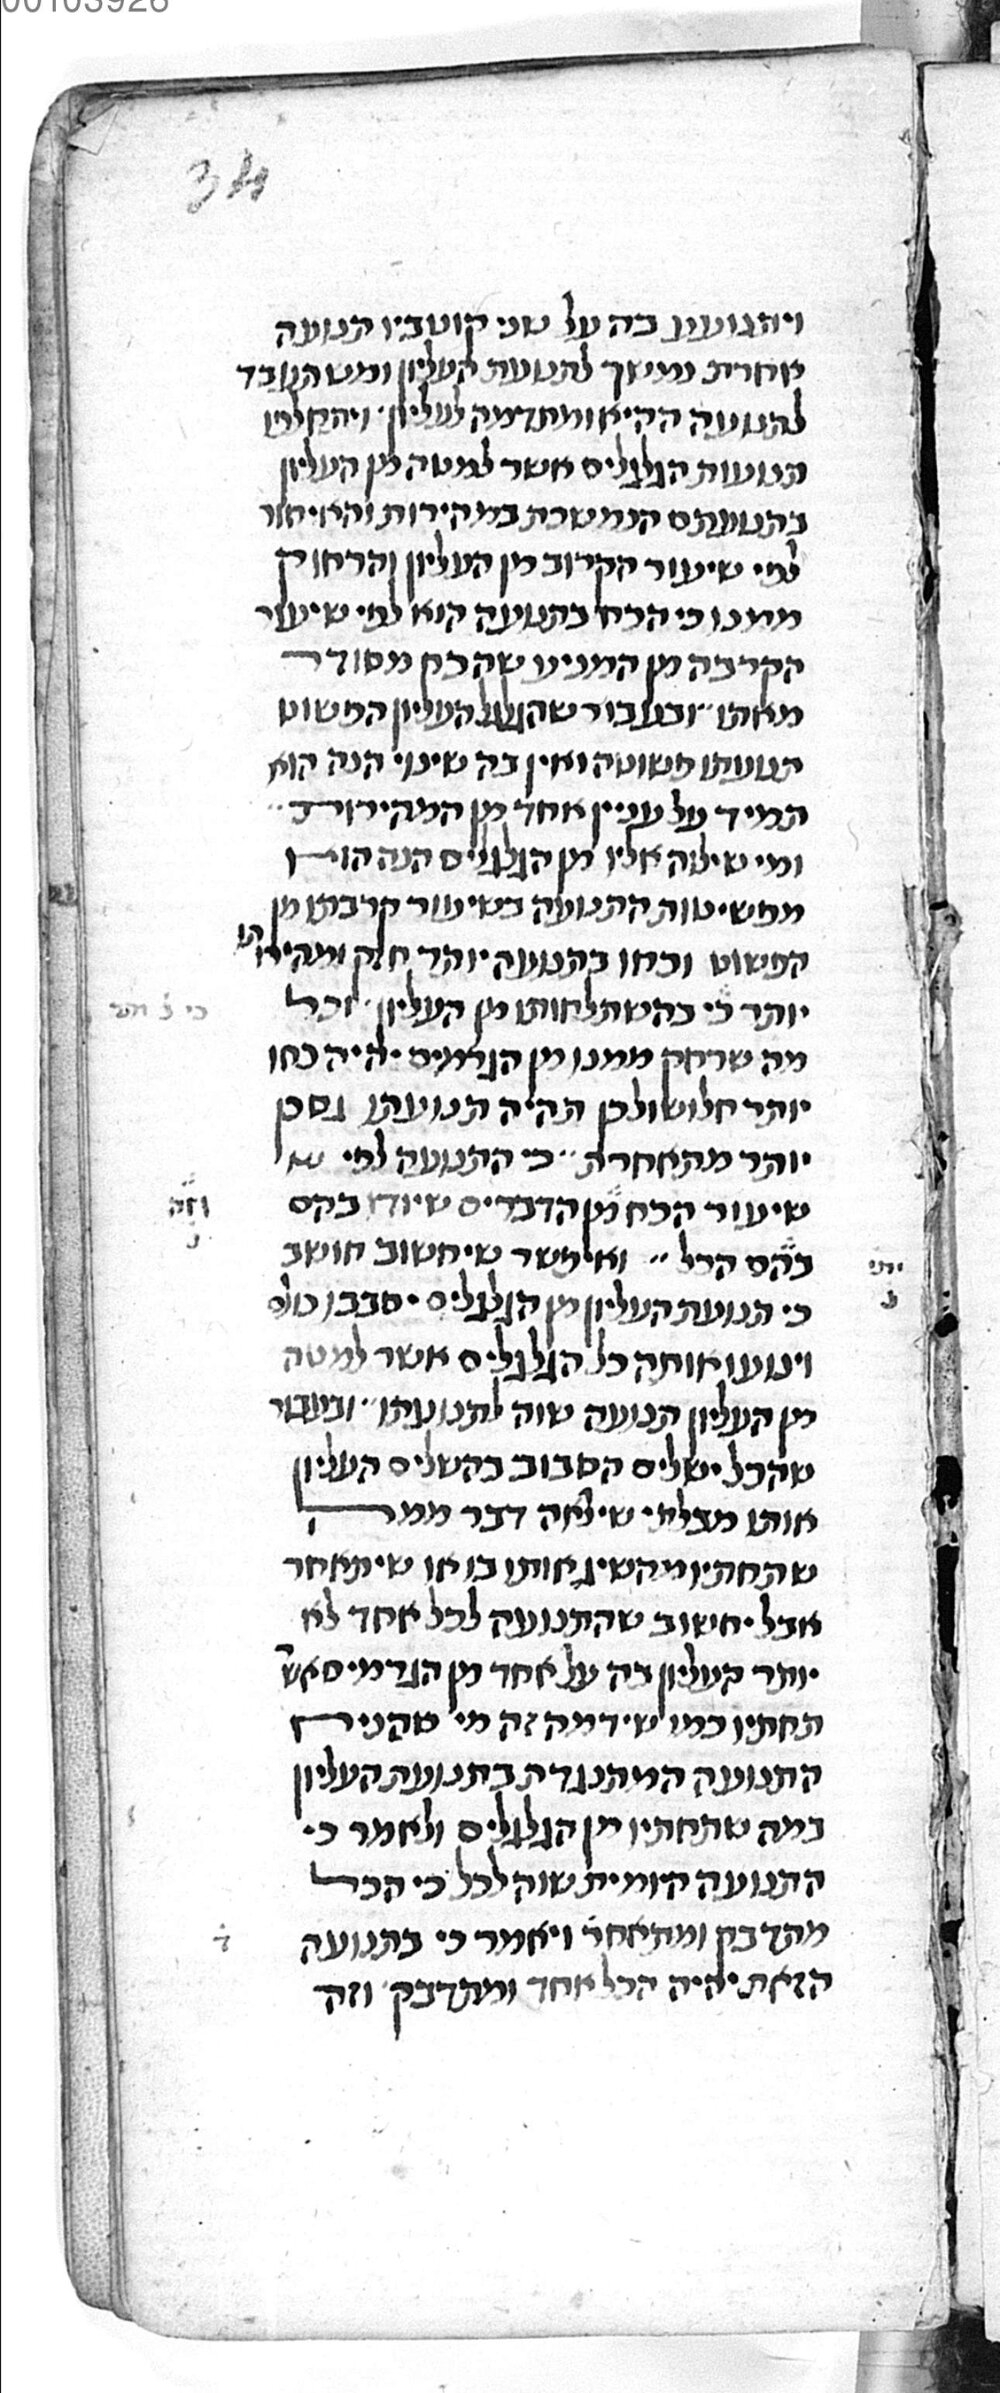 34
ויתנועע בה על שני קוטביו תנועה
אחרת נמשך לתנועת העליון ומשתעבד
לתנועה ההיא ומתדמה לעליון ויתחלפו
תנועות הגלגלים אשר למטה מן העליון
בתנועתם הנמשכת במהירות והאיחור
לפי שיעור הקרוב מן העליון והרחוק
ממנו כי הכח בתנועה הוא לפי שיעור
הקרבה מן המניע שהכח מסודר
מאתו ובעבור שהגלגל העליון הפשוט
תנועתו פשוטה ואין בה שינוי הנה הוא
תמיד על עניין אחד מן המהירות
ומי שילוה אליו מן הגלגלים הנה הוא
מפשיטות התנועה בשיעור קרבתו מן
הפשוט וכחו בתנועה יותר חזק ומהירותו
יותר כי בהשתלחותו מן העליון וכל
מה שרחק ממנו מן הגרמים יהיה כחו
יותר חלוש ולכן תהיה תנועתו גם כן
יותר מתאחרת כי התנועה לפי ש
שיעור הכח מן הדברים שיודו בהם
בהם הכל ואיפשר שיחשוב חושב
כי תנועת העליון מן הגלגלים יסבבו כולם
ויניעו אותה כל הגלגלים אשר למטה
מן העליון תנועה שוה לתנועתו ובעבור
שהכל ישלים הסבוב בהשלים העליון
אותו מבלתי שילאה דבר ממה
שתחתיו מהשיג אותו בו או שיתאחר
אבל יחשוב שהתנועה לכל אחד לא
יותר העליון בה על אחד מן הגרמים אשר
תחתיו כמו שידמה זה מי שהניח
התנועה המתנגדת בתנועת העליון
במה שתחתיו מן הגלגלים ולאמר כי
התנועה היומית שוה לכל כי הכל
מתדבק ומתאחר ויאמר כי בתנועה
הזאת יהיה הכל אחד ומתדבק וזה